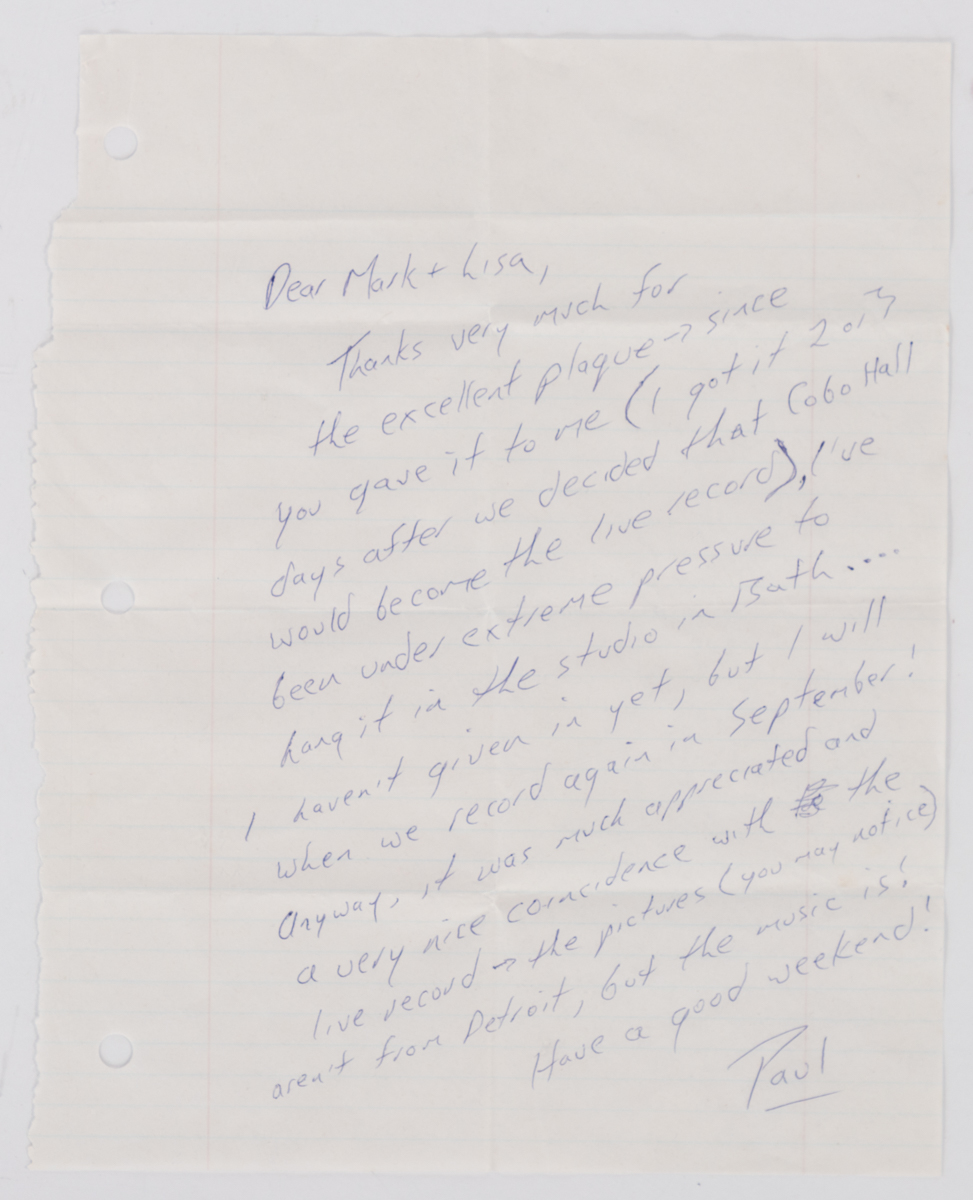 Dear Mark + Lisa,
Thanks very much for
the excellent plaque → since
you gave it to me (I got it 2 or 3
days after we decided that Cobo Hall
would become the live record), I've
been under extreme pressure to
hang it in the studio in Bath....
I haven't given in yet, but I will
when we record again in September!
Anyway, it was much appreciated and
a very nice coincidence with the
live record → the pictures (you may notice)
aren't from Detroit, but the music is!
Have a good weekend!
Paul